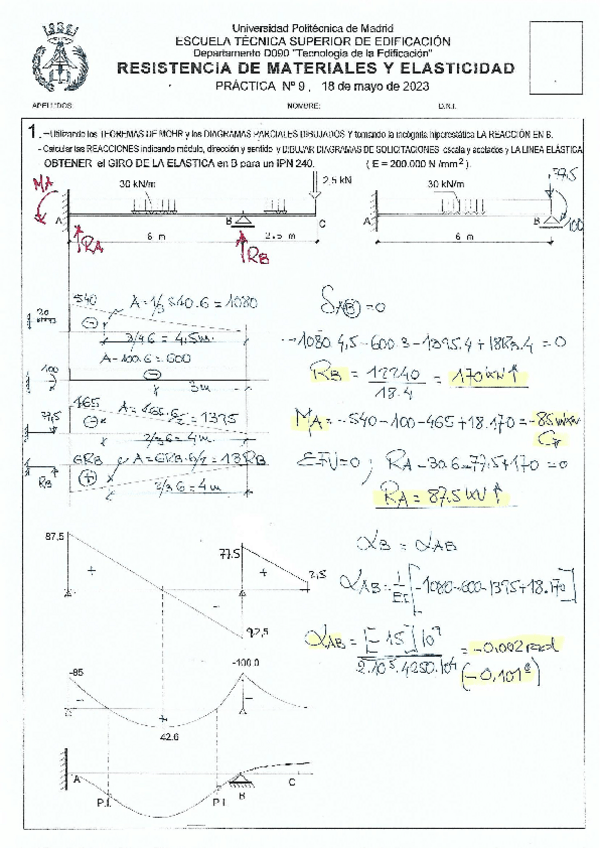 Universidad Politécnica de Madrid
ESCUELA TÉCNICA SUPERIOR DE EDIFICACIÓN
Departamento D090 "Tecnología de la Edificación"
RESISTENCIA DE MATERIALES Y ELASTICIDAD
PRÁCTICA Nº 9 , 18 de mayo de 2023
APELLIDOS: NOMBRE: D.N.I.
1.- Utilizando los TEOREMAS DE MOHR y los DIAGRAMAS PARCIALES DIBUJADOS Y tomando la incógnita hiperestática LA REACCIÓN EN B.
- Calcular las REACCIONES indicando módulo, dirección y sentido y DIBUJAR DIAGRAMAS DE SOLICITACIONES escala y acotados y LA LINEA ELÁSTICA
OBTENER el GIRO DE LA ELASTICA en B para un IPN 240. ( E = 200.000 N /mm² ).
MA 30 kN/m 2,5 kN 30 kN/m 77.5
A B C A B 100
RA 6 m RB 2.5 m 6 m
540 A = 1/3 540.6 = 1080
3/4 6 = 4,5m
A=100.6= 600
100 3m
465
77,5 2/3 6 = 4m
6RB A=6RB.6/2 = 18RB
RB 2/3 6 = 4m
-1080 4,5-600.3-1395.4+18RB.4 = 0
RB = 12240 / 18.4 = 170 kN ↑
MA = -540-100-465+
ΣFV=0 ; RA-30.6-77.5+170 = 0
RA = 87.5 kN ↑
87.5 77.5 2,5
+ - +
92,5
αB = αAB
αAB = 1/EI [-1080-600-1395+18.170]
αAB = [-15] 10⁹ / 2.10⁵.4250.10⁴ = -0,002 rad
-85 -100.0
- + -
42.6
A B C
P.I. P.I.